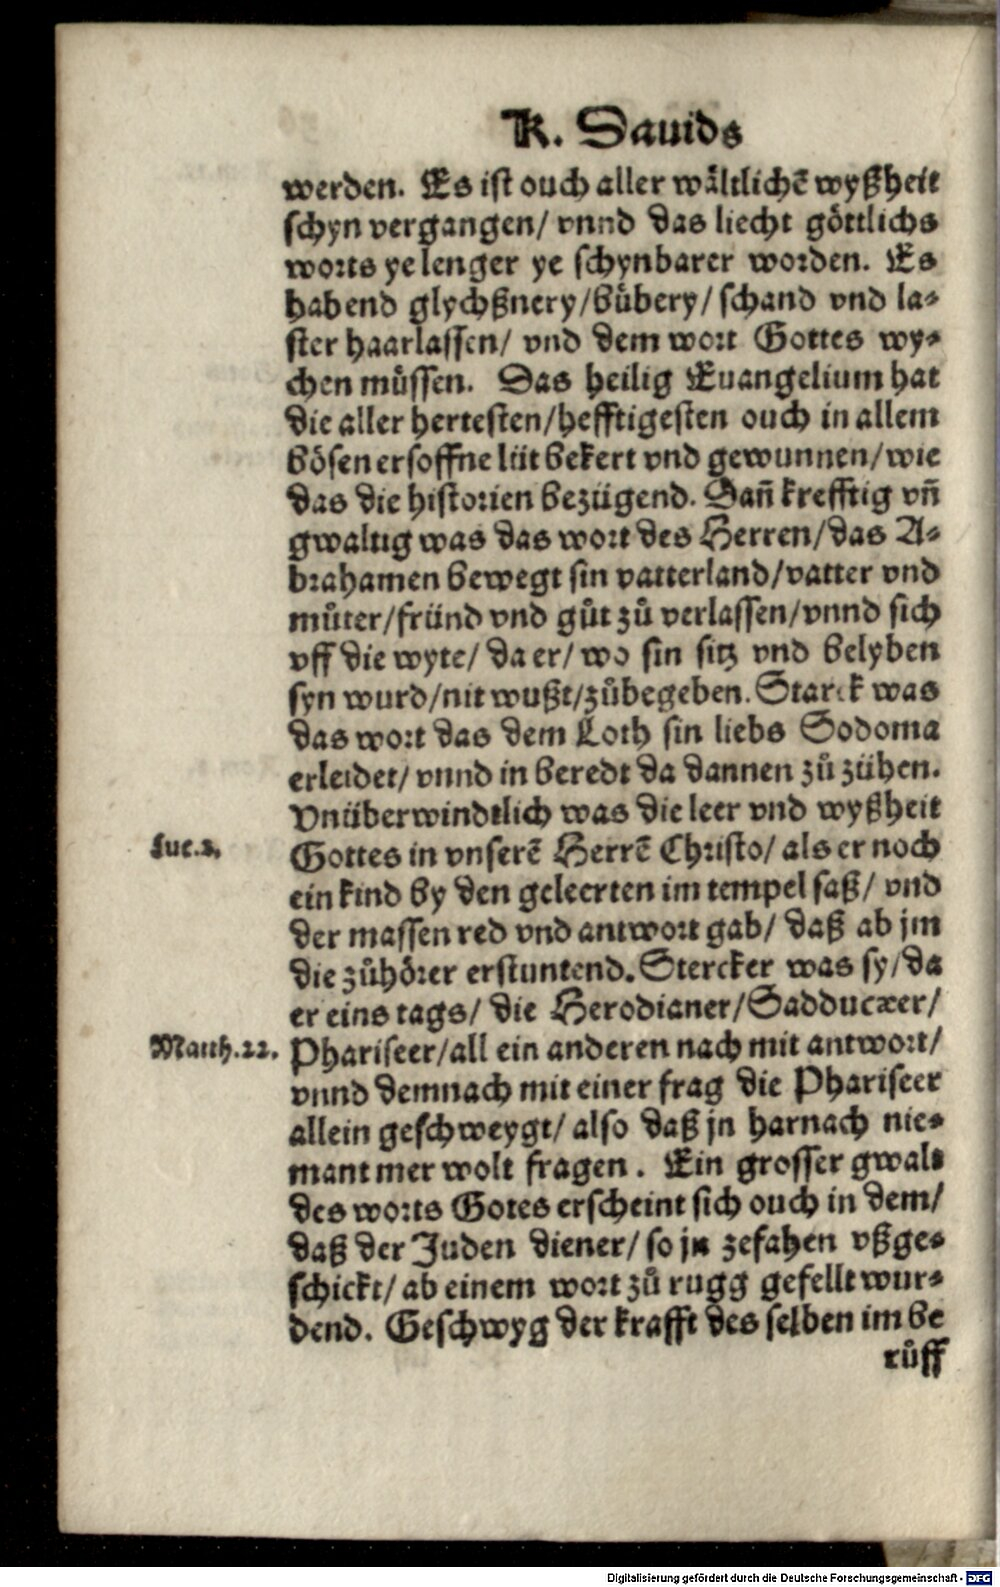 K. Dauids
werden. Es ist ouch aller wältlichē wyßheit
schyn vergangen/ vnnd das liecht göttlichs
worts ye lenger ye schynbarer worden. Es
habend glychßnery/bůbery/ schand vnd la-
ster haarlassen/ vnd dem wort Gottes wy-
chen müssen. Das heilig Euangelium hat
die aller hertesten/hefftigesten ouch in allem
bösen ersoffne lüt bekert vnd gewunnen/wie
das die historien bezügend. Dañ krefftig vñ
gwaltig was das wort des Herren/das A-
brahamen bewegt sin vatterland/vatter vnd
můter/fründ vnd gůt zů verlassen/vnnd sich
vff die wyte/ da er/ wo sin sitz vnd belyben
syn wurd/nit wußt/zůbegeben. Starck was
das wort das dem Loth sin liebs Sodoma
erleidet/ vnnd in beredt da dannen zů zühen.
Vnüberwindtlich was die leer vnd wyßheit
Luc.2.
Gottes in vnserē Herrē Christo/ als er noch
ein kind by den geleerten im tempel saß/ vnd
der massen red vnd antwort gab/ daß ab jm
die zůhörer erstuntend. Stercker was sy/da
er eins tags/ die Herodianer/Sadducæer/
Matth.22.
Phariseer/all ein anderen nach mit antwort/
vnnd demnach mit einer frag die Phariseer
allein geschweygt/ also daß jn harnach nie-
mant mer wolt fragen. Ein grosser gwalt
des worts Gotes erscheint sich ouch in dem/
daß der Juden diener/ so jn zefahen vßge-
schickt/ ab einem wort zů rugg gefellt wur-
dend. Geschwyg der krafft des selben im be
růff
Digitalisierung gefördert durch die Deutsche Forschungsgemeinschaft - DFG